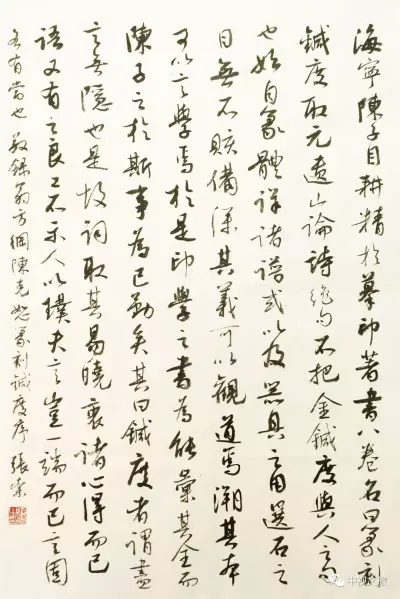 海寧陳子目耕精於摹印著書八卷名曰篆刻
鍼度取元遺山論詩絶句不把金鍼度與人之句
也始自篆體詳諸譜式以及器具之用選石之
目無不賅備溯其義可以觀道焉溯其本
可以言學焉於是印學之書為能彙其全而
陳子之於斯事為已勤矣其曰鍼度者謂盡
言無隱也是故詞取其易曉衷諸心得而已
語又有之良工不示人以璞夫言豈一端而已言固
各有當也 敬録翁方綱陳克恕篆刻鍼度序 張榮